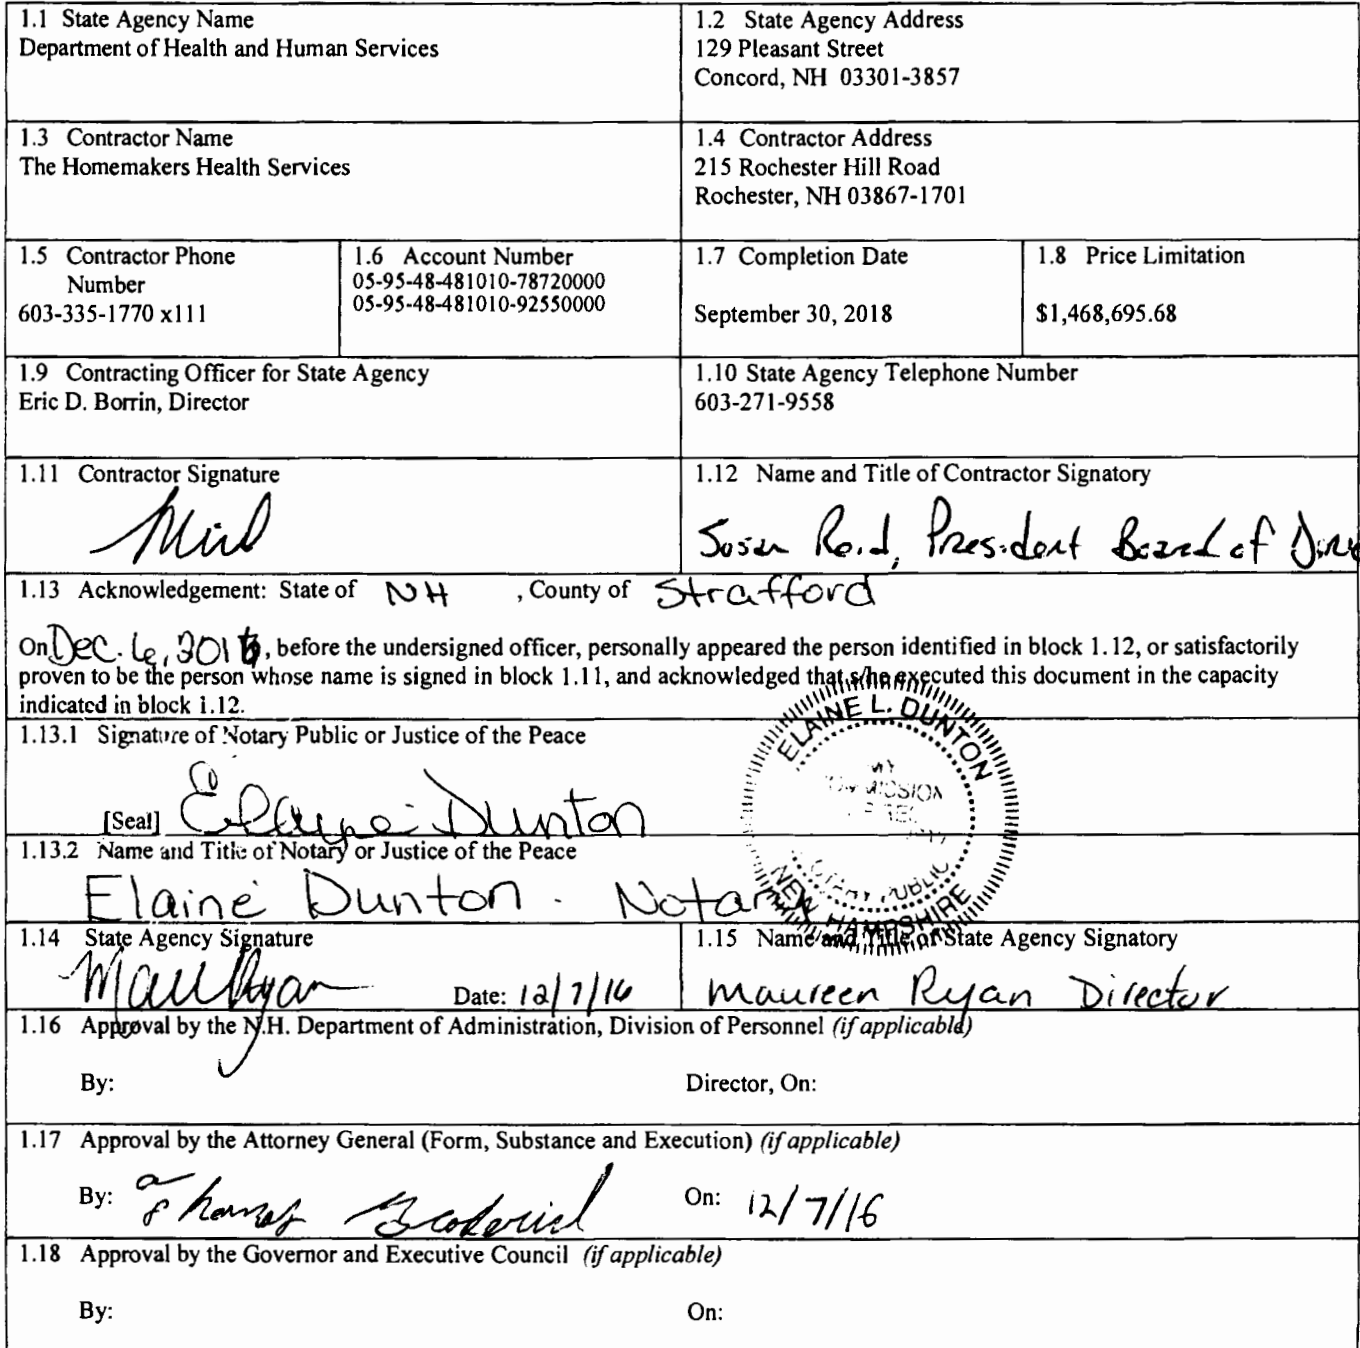 1.1 State Agency Name
Department of Health and Human Services
1.2 State Agency Address
129 Pleasant Street
Concord, NH 03301-3857
1.3 Contractor Name
The Homemakers Health Services
1.4 Contractor Address
215 Rochester Hill Road
Rochester, NH 03867-1701
1.5 Contractor Phone
Number
603-335-1770 x111
1.6 Account Number
05-95-48-481010-78720000
05-95-48-481010-92550000
1.7 Completion Date
September 30, 2018
1.8 Price Limitation
$1,468,695.68
1.9 Contracting Officer for State Agency
Eric D. Borrin, Director
1.10 State Agency Telephone Number
603-271-9558
1.11 Contractor Signature
1.12 Name and Title of Contractor Signatory
Susan Reid, President Board of
1.13 Acknowledgement: State of NH , County of Strafford
On Dec. 6, 2016, before the undersigned officer, personally appeared the person identified in block 1.12, or satisfactorily
proven to be the person whose name is signed in block 1.11, and acknowledged that s/he executed this document in the capacity
indicated in block 1.12.
1.13.1 Signature of Notary Public or Justice of the Peace
[Seal] Elaine Dunton
ELAINE L. DUNTON
MY
COMMISSION
NOTARY PUBLIC
NEW HAMPSHIRE
1.13.2 Name and Title of Notary or Justice of the Peace
Elaine Dunton - Notary
1.14 State Agency Signature
Date: 12/7/16
1.15 Name and Title of State Agency Signatory
Maureen Ryan Director
1.16 Approval by the N.H. Department of Administration, Division of Personnel (if applicable)
By: Director, On:
1.17 Approval by the Attorney General (Form, Substance and Execution) (if applicable)
By: On: 12/7/16
1.18 Approval by the Governor and Executive Council (if applicable)
By: On: